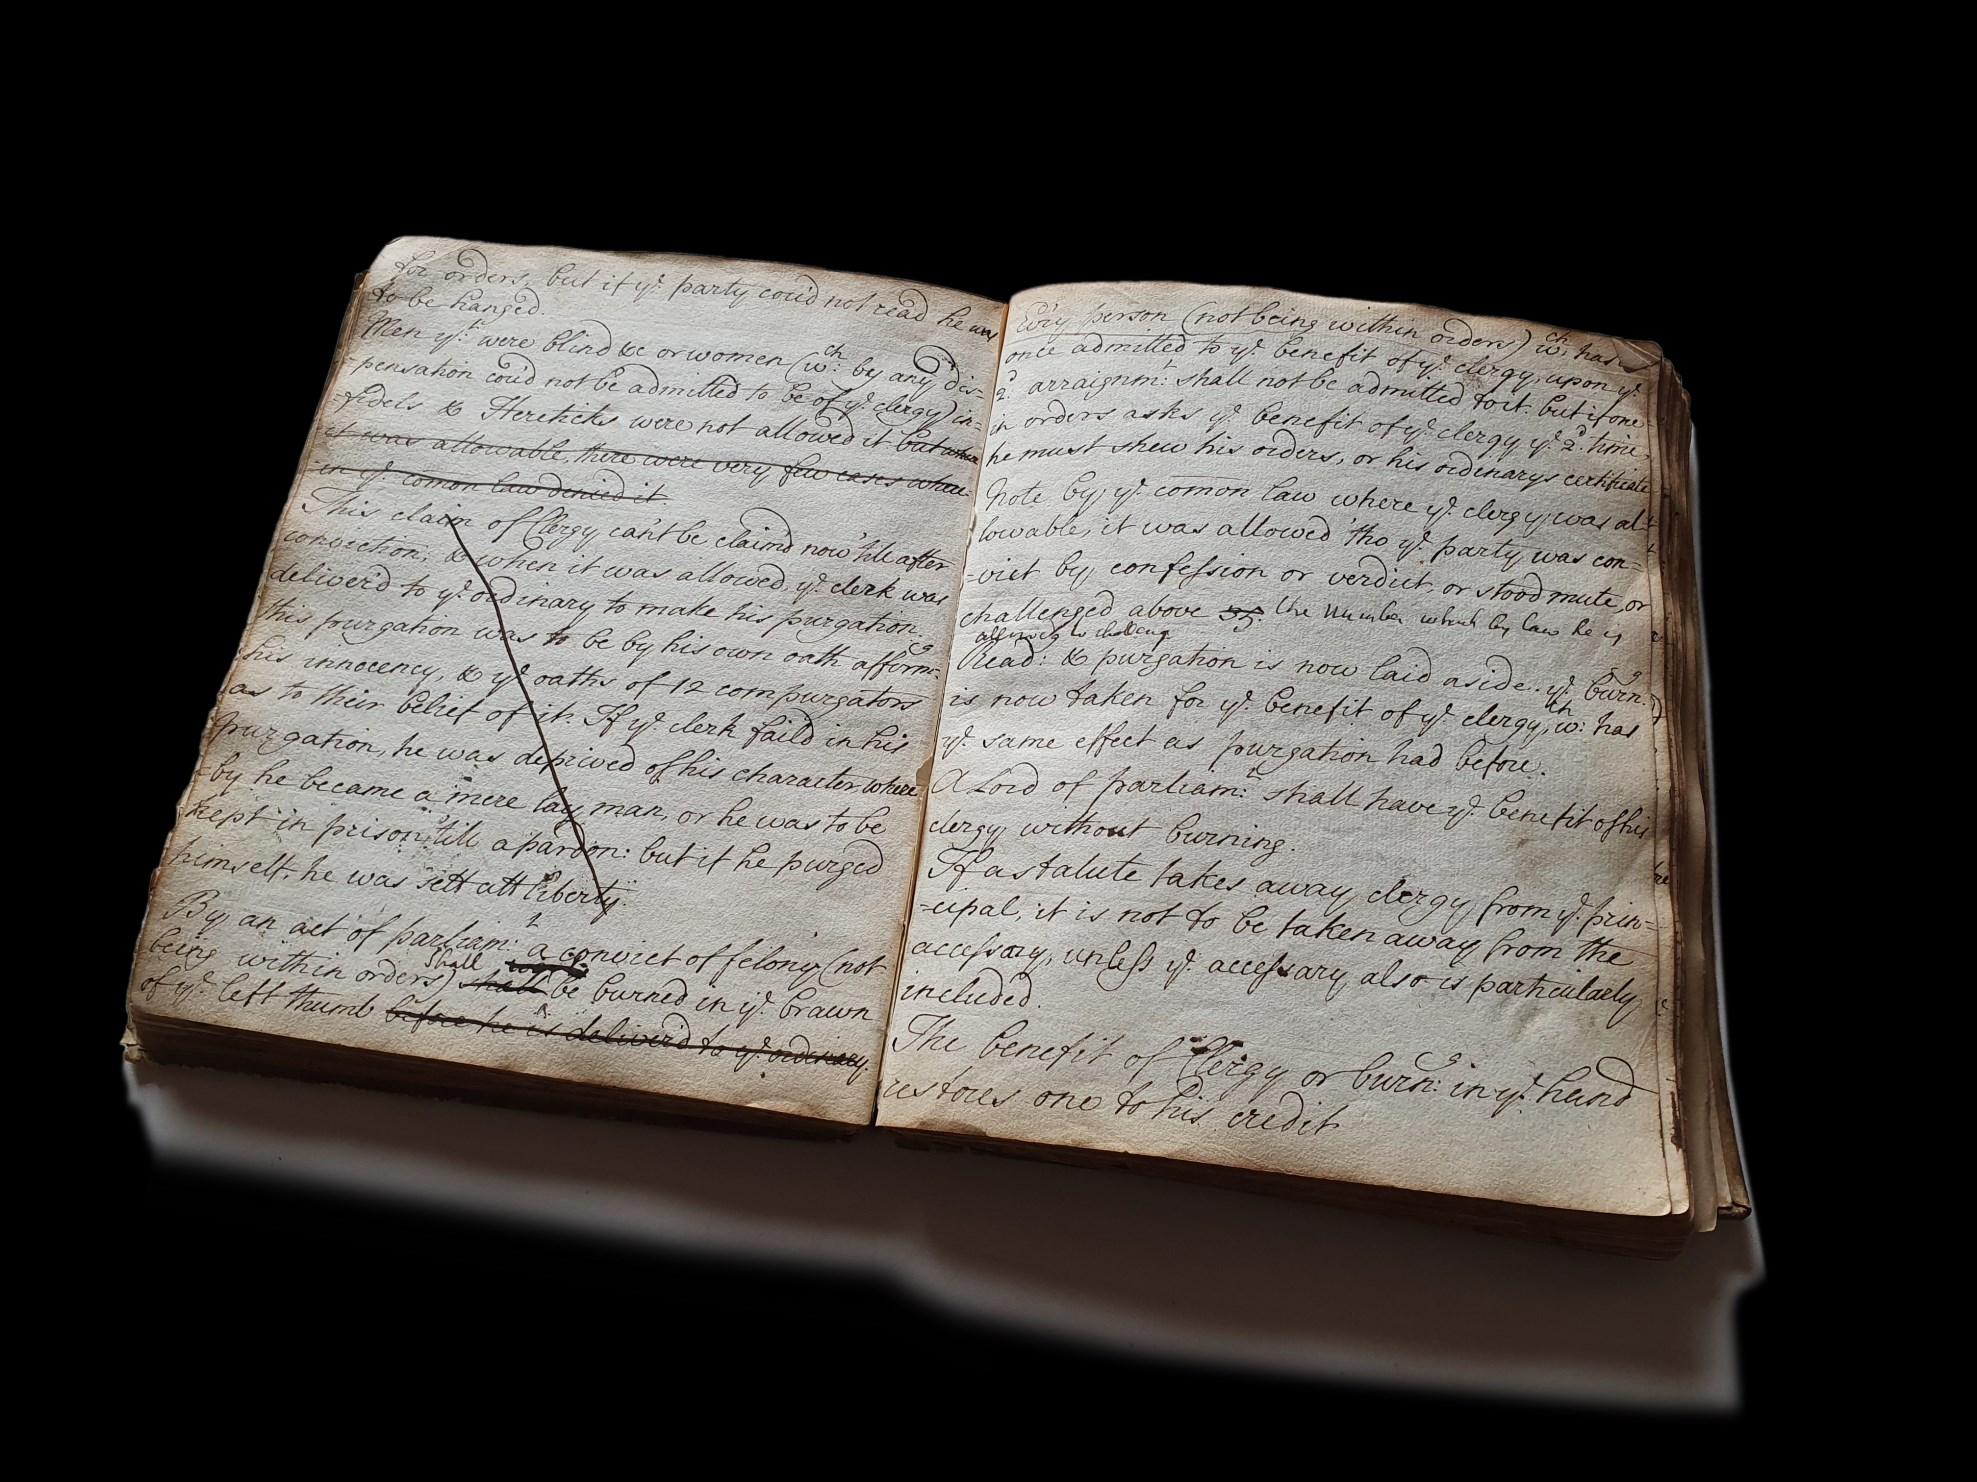 for orders, but if yͤ party cou'd not read he was
to be hanged.
Men yͭ were blind &c or women (wͨʰ by any dis=
=pensation cou'd not be admitted to be of yͤ clergy) in=
=fidels & Hereticks were not allowed it but where
it was allowable, there were very few cases when
in yͤ comon law denied it.
This claim of Clergy can't be claim'd now 'till after
conviction; & when it was allowed, yͤ clerk was
deliver'd to yͤ ordinary to make his purgation.
this purgation was to be by his own oath affirmᵍ
his innocency, & yͤ oaths of 12 compurgators
as to their belief of it. If yͤ clerk fail'd in his
purgation, he was deprived of his character where
=by he became a mere lay man, or he was to be
kept in prison 'till a pardon: but if he purged
himself, he was sett att liberty.
By an act of parliamᵗ a convict of felony (not
being within orders) shall shall be burned in yͤ brawn
of yͤ left thumb before he is deliver'd to yͤ ordinary.
Ev'ry person (not being within orders) wͨʰ has
once admitted to yͤ benefit of yͤ clergy, upon yͤ
2ᵈ arraignmᵗ shall not be admitted to it. but if one
in orders asks yͤ benefit of yͤ clergy yͤ 2ᵈ time,
he must shew his orders, or his ordinarys certificate
Note by yͤ comon law where yͤ clergy was al=
lowable, it was allowed tho yͤ party was con=
=vict by confession or verdict, or stood mute, or
challenged above 35. the number which by law he is
allowed to challenge
Read: & purgation is now laid aside. yͤ burnᵍ
is now taken for yͤ benefit of yͤ clergy, wͨʰ has
yͤ same effect as purgation had before.
A Lord of parliamᵗ shall have yͤ benefit of his
clergy without burning.
If a statute takes away clergy from yͤ prin=
=cipal, it is not to be taken away from the
accessary, unless yͤ accessary also is particularly
included.
The benefit of Clergy or burnᵍ in yͤ hand
restores one to his credit